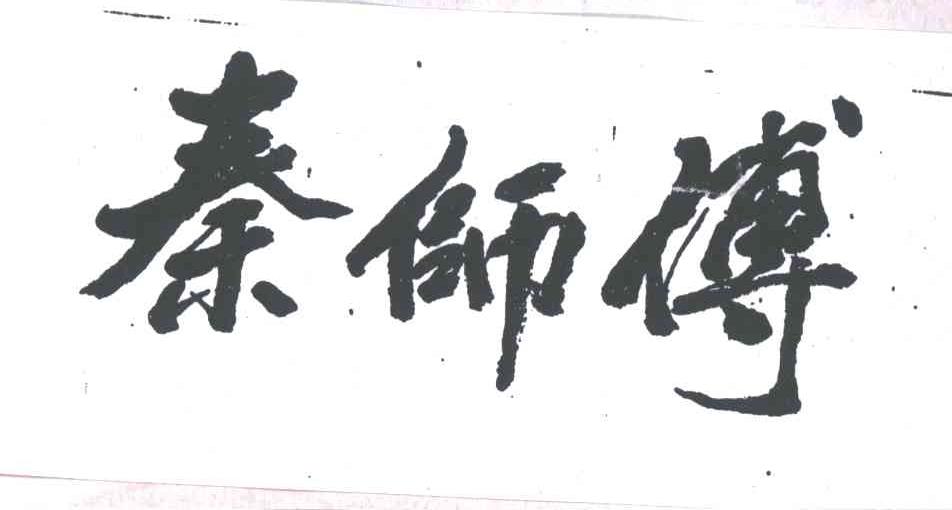 秦師傅